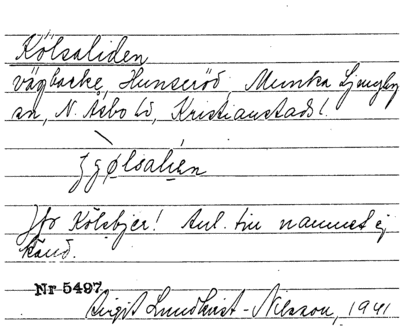 Kölsaliden
vägbacke, Hunseröd, Munka Ljungby
sn, N. Åsbo hd, Kristianstads l.
Jfr Kölsbjer! Anl. till namnet ej
känd.
Nr 5497.
Birgit Lundkvist-Nilsson, 1941